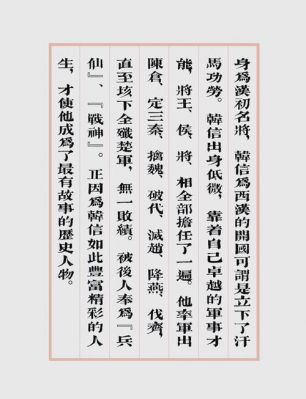 身爲漢初名將，韓信爲西漢的開國可謂是立下了汗
馬功勞。韓信出身低微，靠着自己卓越的軍事才
能，將王、侯、將、相全部擔任了一遍。他率軍出
陳倉，定三秦，擒魏，破代，滅趙，降燕，伐齊，
直至垓下全殲楚軍，無一敗績。被後人奉爲『兵
仙』、『戰神』。正因爲韓信如此豐富精彩的人
生，才使他成爲了最有故事的歷史人物。